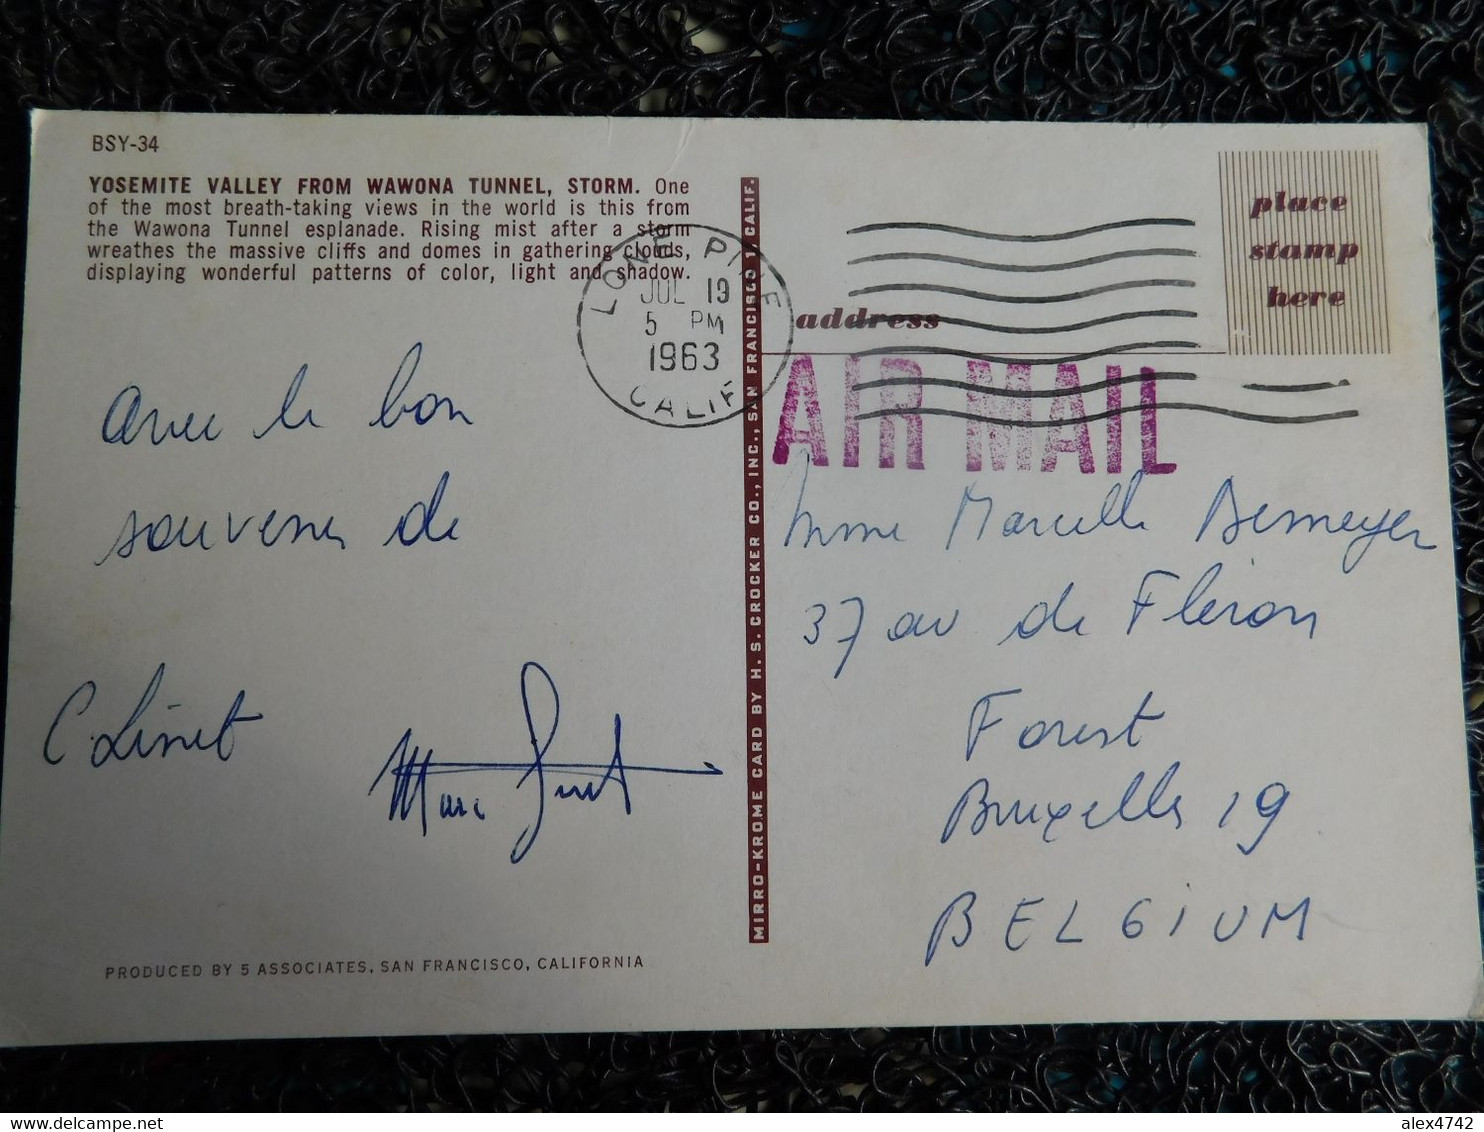 BSY-34
YOSEMITE VALLEY FROM WAWONA TUNNEL, STORM. One
of the most breath-taking views in the world is this from
the Wawona Tunnel esplanade. Rising mist after a storm
wreathes the massive cliffs and domes in gathering clouds,
displaying wonderful patterns of color, light and shadow.
LONE PINE
JUL 19
5 PM
1963
CALIF
avec le bon
souvenir de
C Linet
Marc
PRODUCED BY 5 ASSOCIATES, SAN FRANCISCO, CALIFORNIA
MIRRO-KROME CARD BY H. S. CROCKER CO., INC., SAN FRANCISCO 1, CALIF.
place
stamp
here
address
AIR MAIL
Mme Marcelle Demeyer
37 av de Fléron
Forest
Bruxelles 19
BELGIUM
alex4742